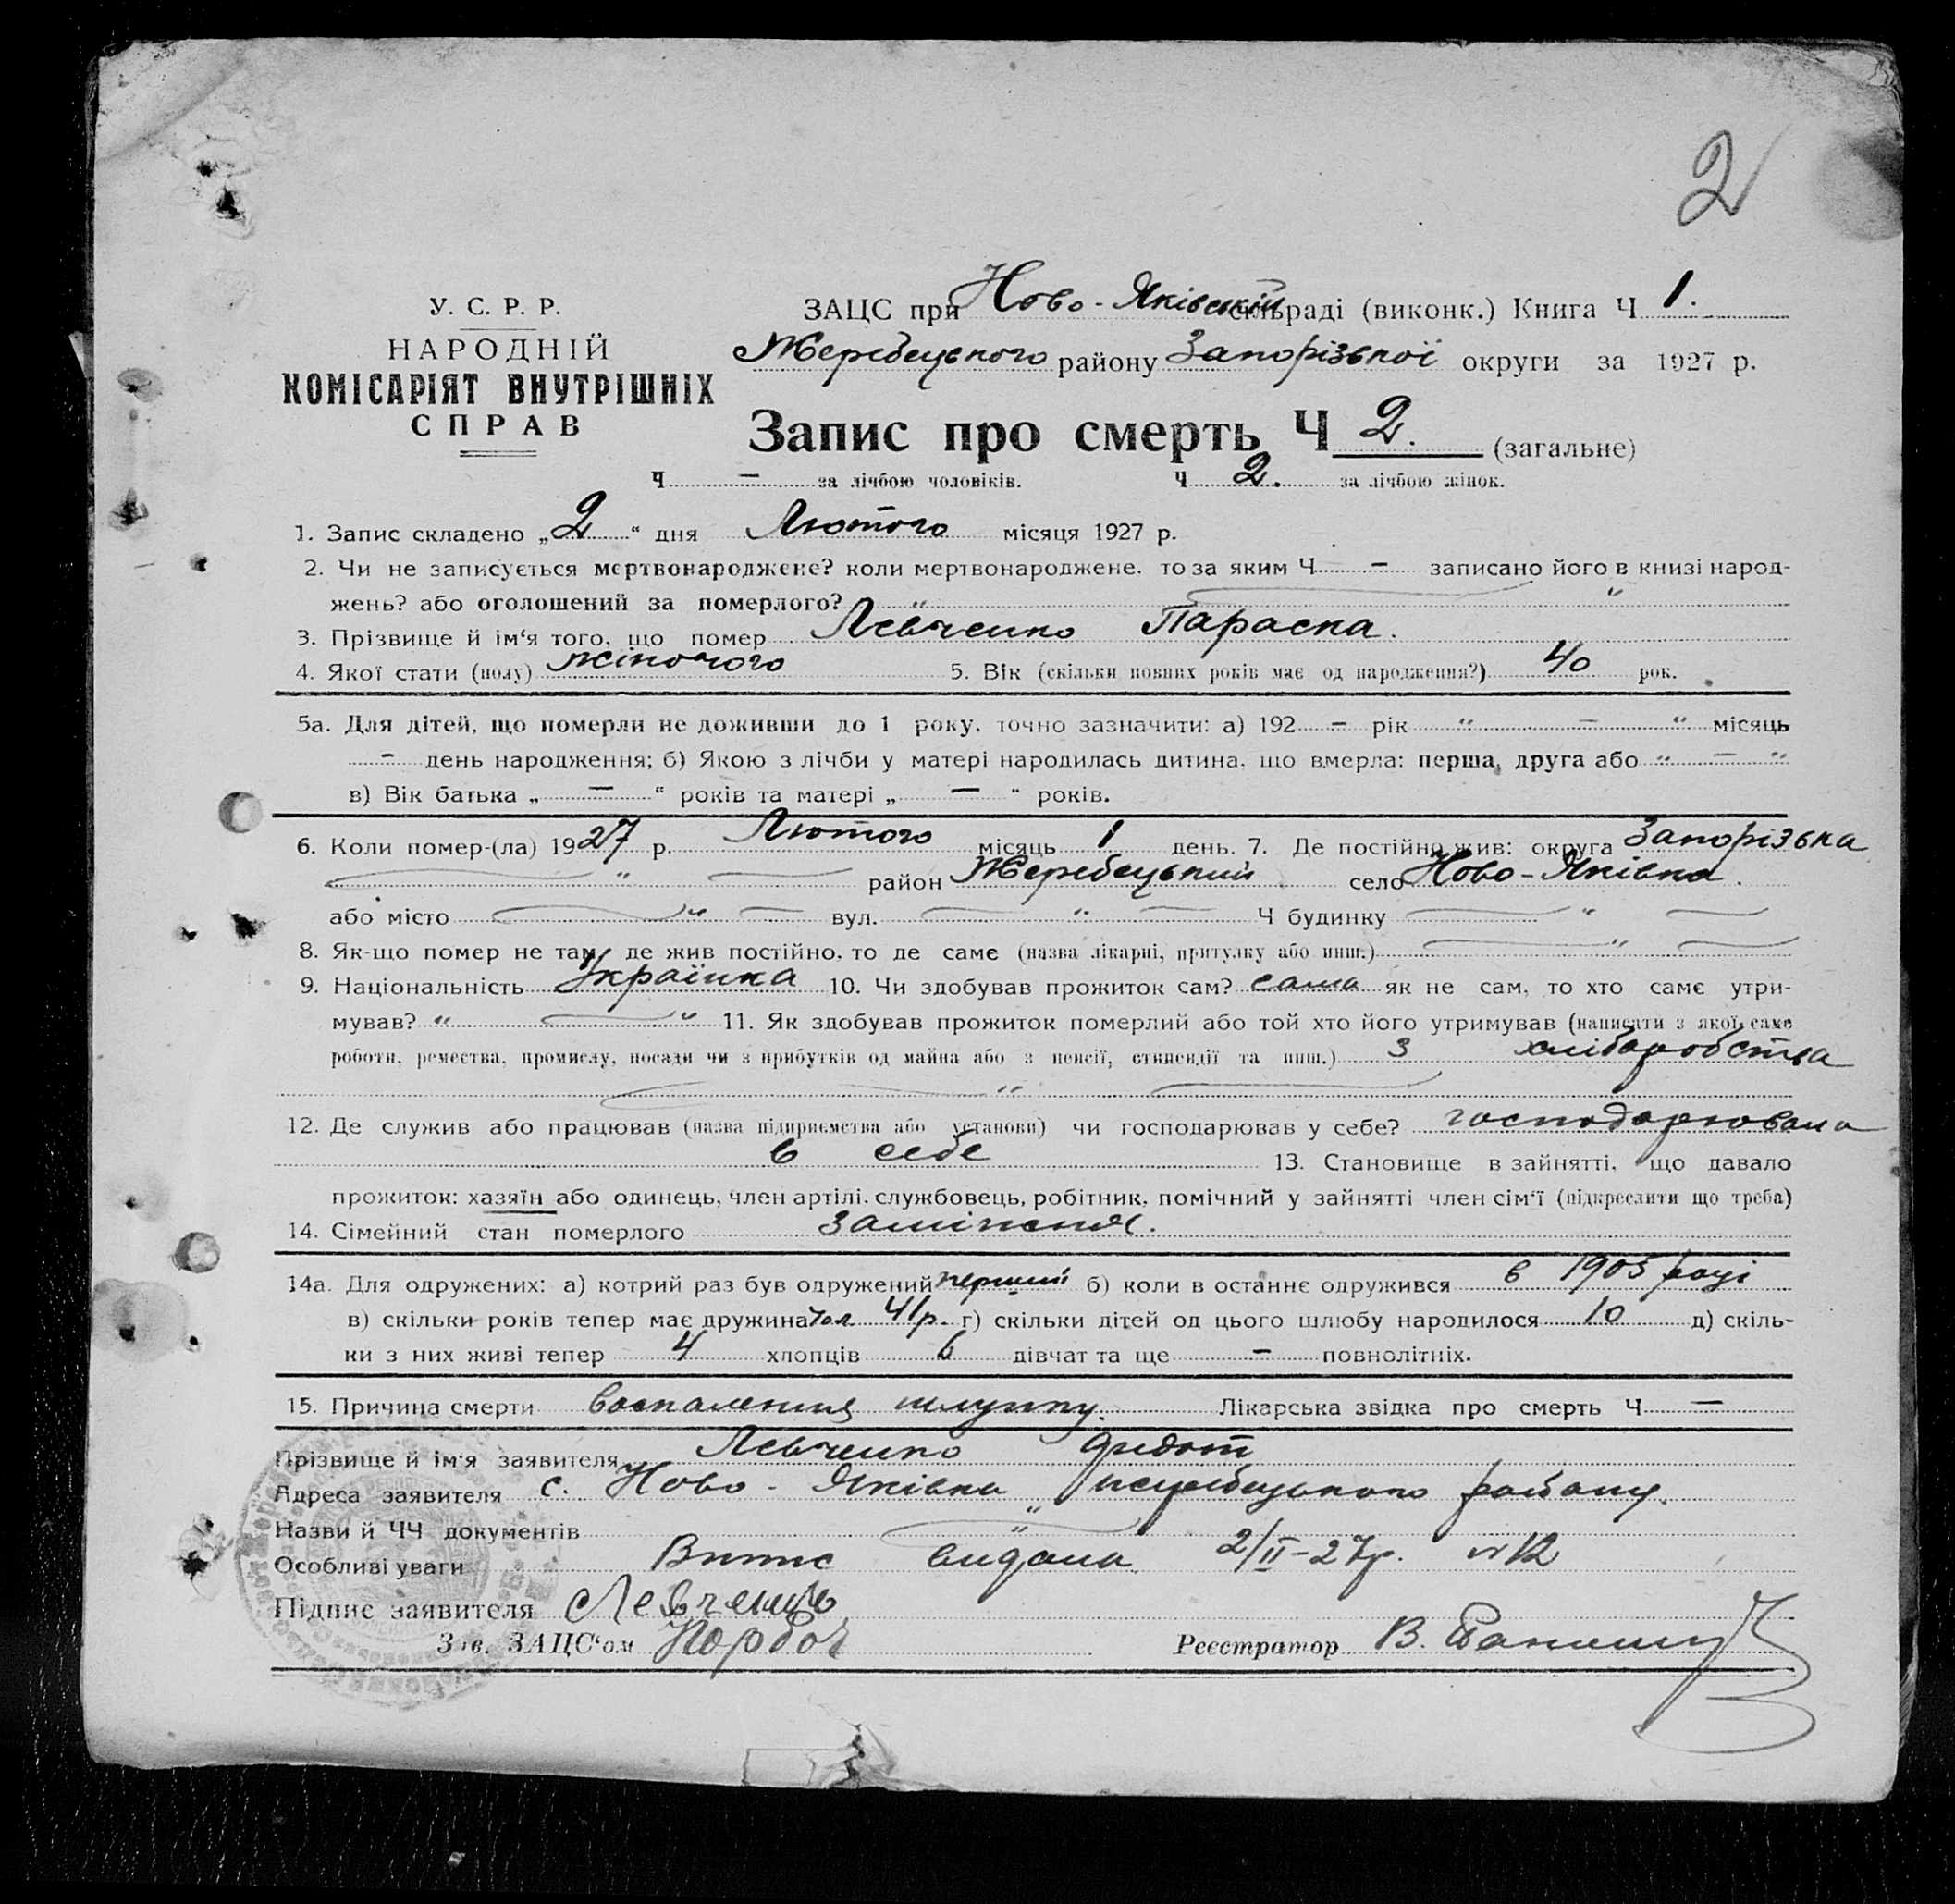 2
У. С. Р. Р.
НАРОДНІЙ
КОМІСАРІЯТ ВНУТРІШНІХ
СПРАВ
ЗАЦС при Ново-Яківській сільраді (виконк.) Книга Ч 1.
Жеребецького району Запорізької округи за 1927 р.
Запис про смерть Ч 2. (загальне)
Ч — за лічбою чоловіків. Ч 2. за лічбою жінок.
1. Запис складено „2“ дня Лютого місяця 1927 р.
2. Чи не записується мертвонароджене? коли мертвонароджене, то за яким Ч — записано його в книзі народ-
жень? або оголошений за померлого? „ — „
3. Прізвище й ім'я того, що помер Левченко Параска.
4. Якої стати (полу) жіночого 5. Вік (скільки повних років має од народження?) 40 рок.
5а. Для дітей, що померли не доживши до 1 року, точно зазначити: а) 192 — рік „ — „ місяць
— день народження; б) Якою з лічби у матері народилась дитина, що вмерла: перша, друга або „ — „
в) Вік батька „ — “ років та матері „ — “ років.
6. Коли помер-(ла) 1927 р. Лютого місяць 1 день. 7. Де постійно жив: округа Запорізька
— „ — район Жеребецький село Ново-Яківка.
або місто — „ — вул. — „ — Ч будинку — „ —
8. Як-що помер не там, де жив постійно, то де саме (назва лікарні, притулку або инш.) — „ —
9. Національність Українка 10. Чи здобував прожиток сам? сама як не сам, то хто саме утри-
мував? „ — „ 11. Як здобував прожиток померлий або той хто його утримував (написати з якої саме
роботи, ремества, промислу, посади чи з прибутків од майна або з пенсії, стипендії та инш.) з хліборобства
— „ —
12. Де служив або працював (назва підприємства або установи) чи господарював у себе? господарювала
в себе 13. Становище в зайнятті, що давало
прожиток: хазяїн або одинець, член артілі, службовець, робітник, помічний у зайнятті член сім'ї (підкреслити що треба)
14. Сімейний стан померлого заміжня.
14а. Для одружених: а) котрий раз був одружений перший б) коли в останнє одружився в 1905 році
в) скільки років тепер має дружина чол. 41 р. г) скільки дітей од цього шлюбу народилося 10 д) скіль-
ки з них живі тепер 4 хлопців 6 дівчат та ще — повнолітніх.
15. Причина смерти воспаления шлунку. Лікарська звідка про смерть Ч —
Прізвище й ім'я заявителя Левченко Федот
Адреса заявителя с. Ново-Яківка Жеребецького району.
Назви й ЧЧ документів — „ —
Особливі уваги Випис видана 2/II-27р. №12
Підпис заявителя Левченко
Зав. ЗАЦС'ом
Реєстратор В.